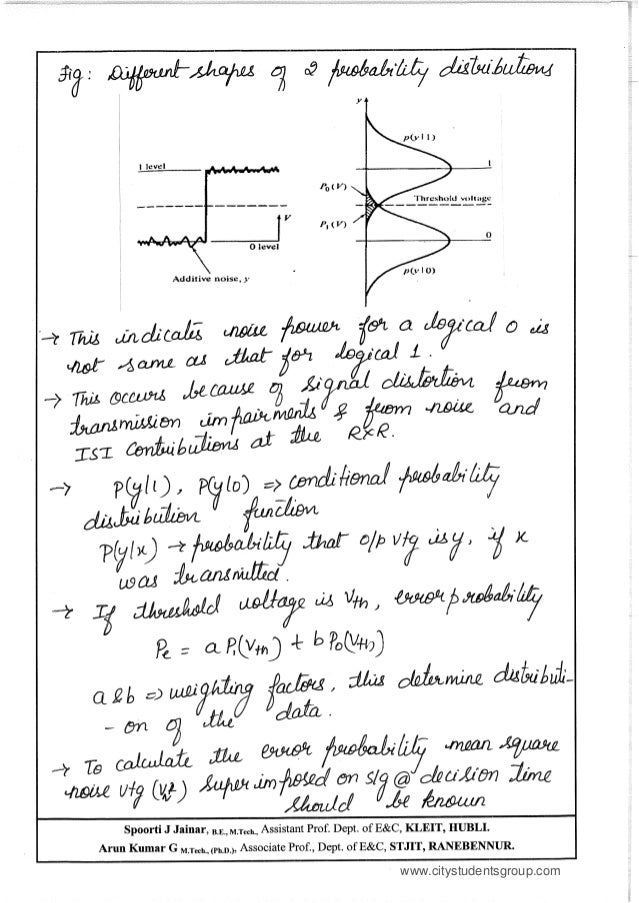 Fig: Different shapes of 2 probability distributions
y
p(y|1)
1 level
1
P₀(V)
Threshold voltage
V
P₁(V)
0 level
0
Additive noise, y
p(y|0)
→ This indicates noise power for a logical 0 is
not same as that for logical 1.
→ This occurs because of signal distortion from
transmission impairments & from noise and
ISI contributions at the RXR.
→ P(y/1), P(y/0) => conditional probability
distribution function
P(y/x) → probability that o/p vtg is y, if x
was transmitted.
→ If threshold voltage is Vth, error probability
Pe = a P₁(Vth) + b P₀(Vth)
a & b => weighting factors, this determine distributi-
- on of the data.
→ To calculate the error probability mean square
noise vtg (Vₙ²) superimposed on slg @ decision time
should be known
Spoorti J Jainar, B.E., M.Tech., Assistant Prof. Dept. of E&C, KLEIT, HUBLI.
Arun Kumar G M.Tech., (Ph.D.), Associate Prof., Dept. of E&C, STJIT, RANEBENNUR.
www.citystudentsgroup.com